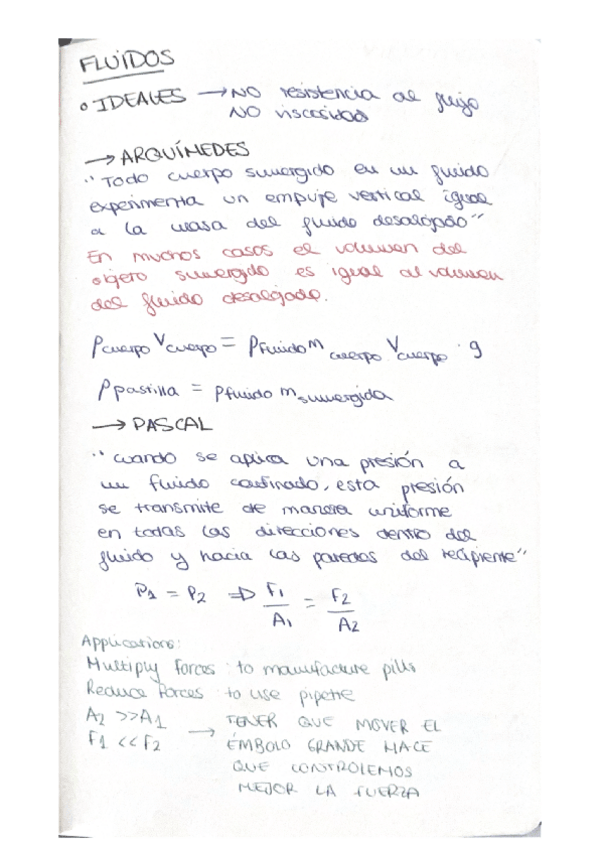 FLUIDOS
o IDEALES → NO resistencia al flujo
NO viscosidad
→ ARQUÍMEDES
"Todo cuerpo sumergido en un fluido
experimenta un empuje vertical igual
a la masa del fluido desalojado"
En muchos casos el volumen del
objeto sumergido es igual al volumen
del fluido desalojado.
ρcuerpo Vcuerpo = ρfluido m cuerpo Vcuerpo · g
ρpastilla = ρfluido m sumergida
→ PASCAL
"cuando se aplica una presión a
un fluido confinado, esta presión
se transmite de manera uniforme
en todas las direcciones dentro del
fluido y hacia las paredes del recipiente"
P1 = P2 ⇒ F1/A1 = F2/A2
Applications:
Multiply forces : to manufacture pills
Reduce forces : to use pipette
A2 >> A1
F1 << F2
→ TENER QUE MOVER EL
ÉMBOLO GRANDE HACE
QUE CONTROLEMOS
MEJOR LA FUERZA